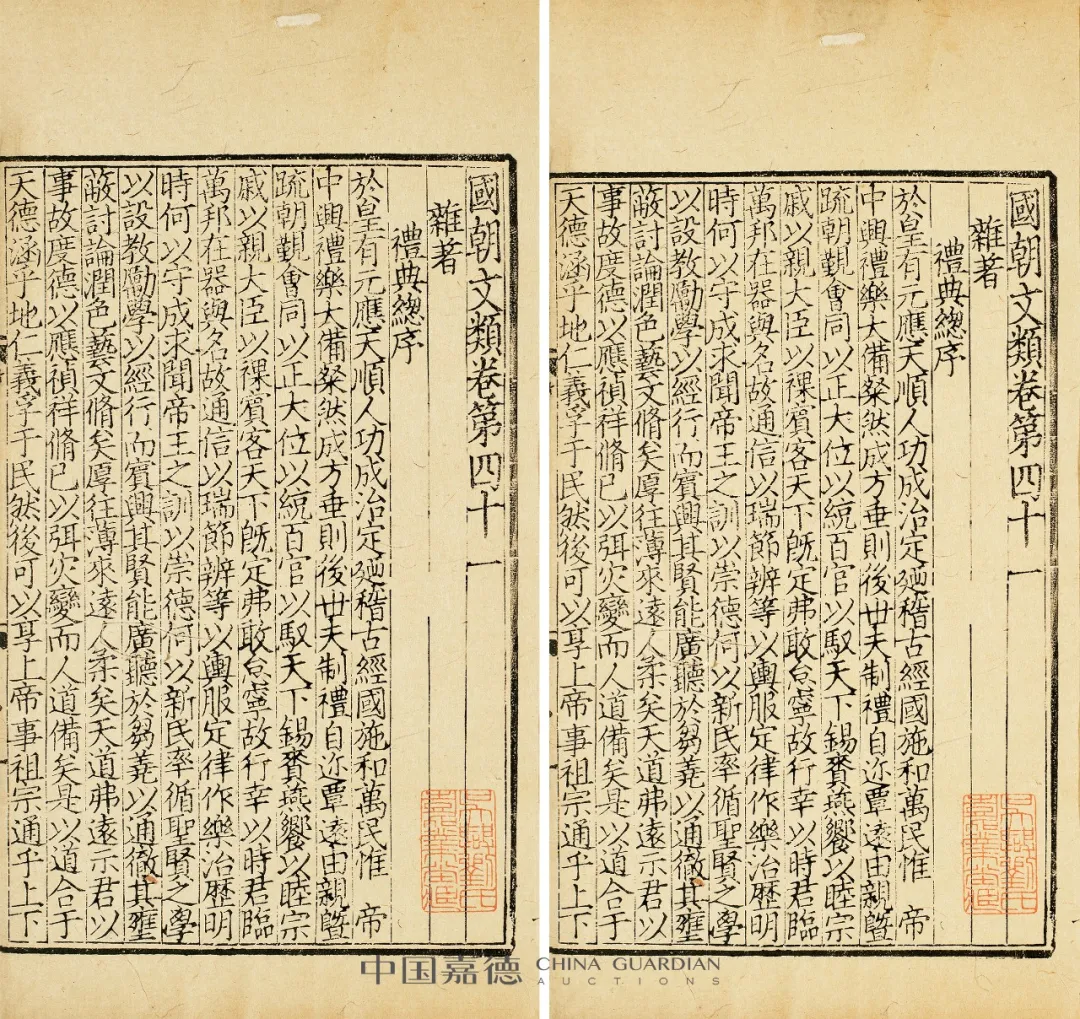 國朝文類卷第四十一
雜著
禮典緫序
於皇有元應天順人功成治定廼稽古經國施和萬民惟 帝
中興禮樂大備粲然成方垂則後丗夫制禮自迩覃逺由親曁
疏朝覲會同以正大位以綂百官以馭天下錫賚燕饗以睦宗
戚以親大臣以祼賓客天下旣定弗敢怠寧故行幸以時君臨
萬邦在器與名故通信以瑞節辨等以輿服定律作樂治歷明
時何以守成求聞帝王之訓以崇德何以新民率循聖賢之學
以設教勵學以經行而賓興其賢能廣聽於芻蕘以通徹其壅
蔽討論潤色藝文脩矣厚往薄來逺人柔矣天道弗逺示君以
事故度德以應禎祥脩己以弭灾變而人道備矣是以道合于
天德涵乎地仁義孚于民然後可以享上帝事祖宗通乎上下
吳興劉氏
嘉業堂藏
國朝文類卷第四十一
雜著
禮典緫序
於皇有元應天順人功成治定廼稽古經國施和萬民惟 帝
中興禮樂大備粲然成方垂則後丗夫制禮自迩覃逺由親曁
疏朝覲會同以正大位以綂百官以馭天下錫賚燕饗以睦宗
戚以親大臣以祼賓客天下旣定弗敢怠寧故行幸以時君臨
萬邦在器與名故通信以瑞節辨等以輿服定律作樂治歷明
時何以守成求聞帝王之訓以崇德何以新民率循聖賢之學
以設教勵學以經行而賓興其賢能廣聽於芻蕘以通徹其壅
蔽討論潤色藝文脩矣厚往薄來逺人柔矣天道弗逺示君以
事故度德以應禎祥脩己以弭灾變而人道備矣是以道合于
天德涵乎地仁義孚于民然後可以享上帝事祖宗通乎上下
吳興劉氏
嘉業堂藏
中国嘉德 CHINA GUARDIAN
AUCTIONS